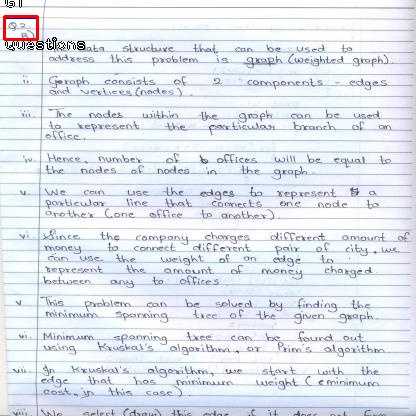 Q2.
B)
Questions
data structure that can be used to
address this problem is graph (weighted graph).
ii. Graph consists of 2 components - edges
and vertices (nodes).
iii. The nodes within the graph can be used
to represent the particular branch of an
office.
iv. Hence, number of offices will be equal to
the nodes of nodes in the graph.
v. We can use the edges to represent a
particular line that connects one node to
another (one office to another).
vi. Since the company charges different amount of
money to connect different pair of city, we
can use the weight of an edge to
represent the amount of money charged
between any to offices.
v This problem can be solved by finding the
minimum spanning tree of the given graph.
vi. Minimum spanning tree can be found out
using Kruskal's algorithm, or Prim's algorithm.
vii. In Kruskal's algorithm, we start with the
edge that has minimum weight (minimum
cost, in this case).
viii. We select (draw) this edge if it does not